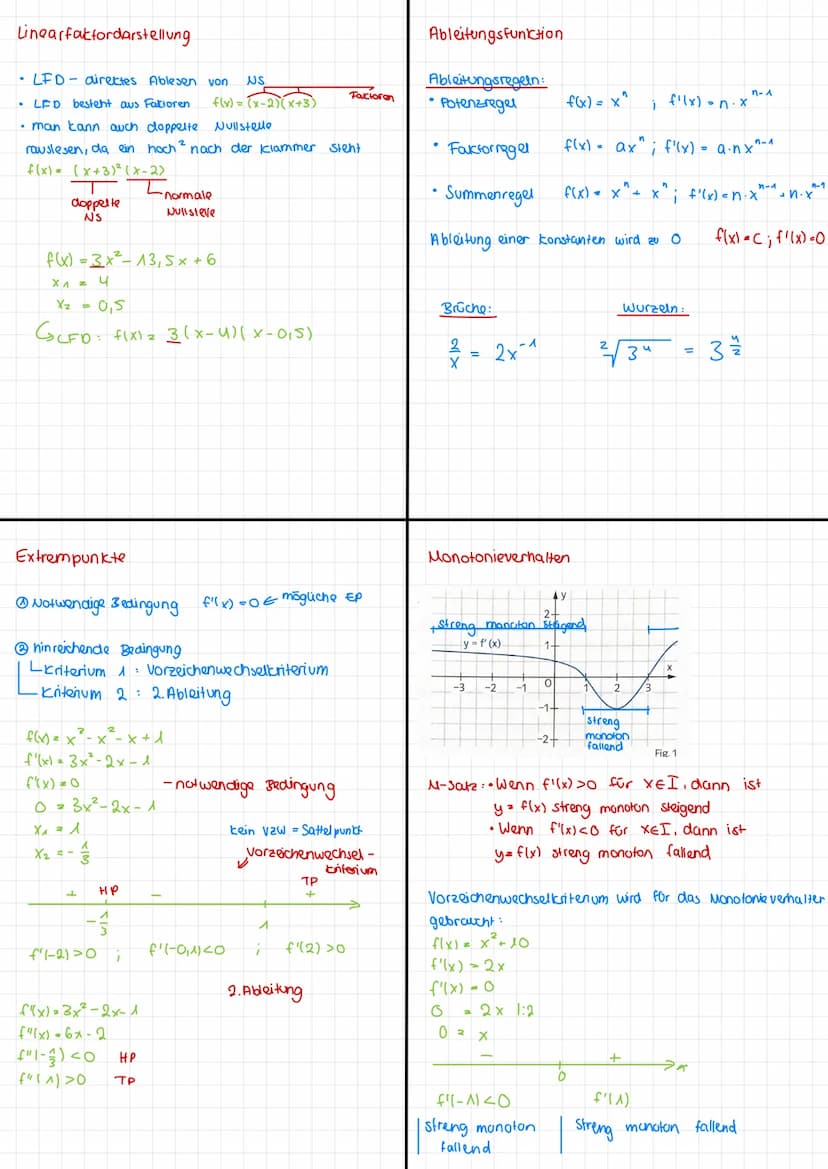 Linearfaktordarstellung
• LFD - direktes Ablesen von NS
• LFD besteht aus Faktoren f(x) = (x-2)(x+3) Faktoren
• man kann auch doppelte Nullstelle
rauslesen, da ein hoch² nach der Klammer steht
f(x) = (x+3)² (x-2)
doppelte NS
normale Nullstelle
f(x) = 3x² - 13,5x + 6
x₁ = 4
x₂ = 0,5
↳ LFD: f(x) = 3(x-4)(x-0,5)
Ableitungsfunktion
Ableitungsregeln:
• Potenzregel f(x) = xⁿ ; f'(x) = n·xⁿ⁻¹
• Faktorregel f(x) = axⁿ ; f'(x) = a·nxⁿ⁻¹
• Summenregel f(x) = xⁿ + xⁿ ; f'(x) = n·xⁿ⁻¹ + n·xⁿ⁻¹
Ableitung einer Konstanten wird zu 0 f(x) = C ; f'(x) = 0
Brüche: Wurzeln:
2/x = 2x⁻¹ ²√3⁴ = 3^(4/2)
Extrempunkte
① Notwendige Bedingung f'(x) = 0 ← mögliche EP
② hinreichende Bedingung
Kriterium 1 : Vorzeichenwechselkriterium
Kriterium 2 : 2.Ableitung
f(x) = x³ - x² - x + 1
f'(x) = 3x² - 2x - 1
f'(x) = 0 - notwendige Bedingung
0 = 3x² - 2x - 1
x₁ = 1 kein VZW = Sattelpunkt
x₂ = -1/3 Vorzeichenwechsel-
kriterium
+ HP - TP +
-1/3 1
f'(-2) > 0 ; f'(-0,1) < 0 ; f'(2) > 0
2.Ableitung
f'(x) = 3x² - 2x - 1
f''(x) = 6x - 2
f''(-1/3) < 0 HP
f''(1) > 0 TP
Monotonieverhalten
y
2
streng monoton steigend
y = f'(x)
1
x
-3 -2 -1 0 1 2 3
-1
streng
monoton
fallend
-2
Fig. 1
M-Satz: • Wenn f'(x) > 0 für x∈I, dann ist
y = f(x) streng monoton steigend
• Wenn f'(x) < 0 für x∈I, dann ist
y = f(x) streng monoton fallend
Vorzeichenwechselkriterium wird für das Monotonieverhalten
gebraucht:
f(x) = x² + 10
f'(x) = 2x
f'(x) = 0
0 = 2x |:2
0 = x
- + x
0
f'(-1) < 0 f'(1)
streng monoton fallend
streng monoton fallend